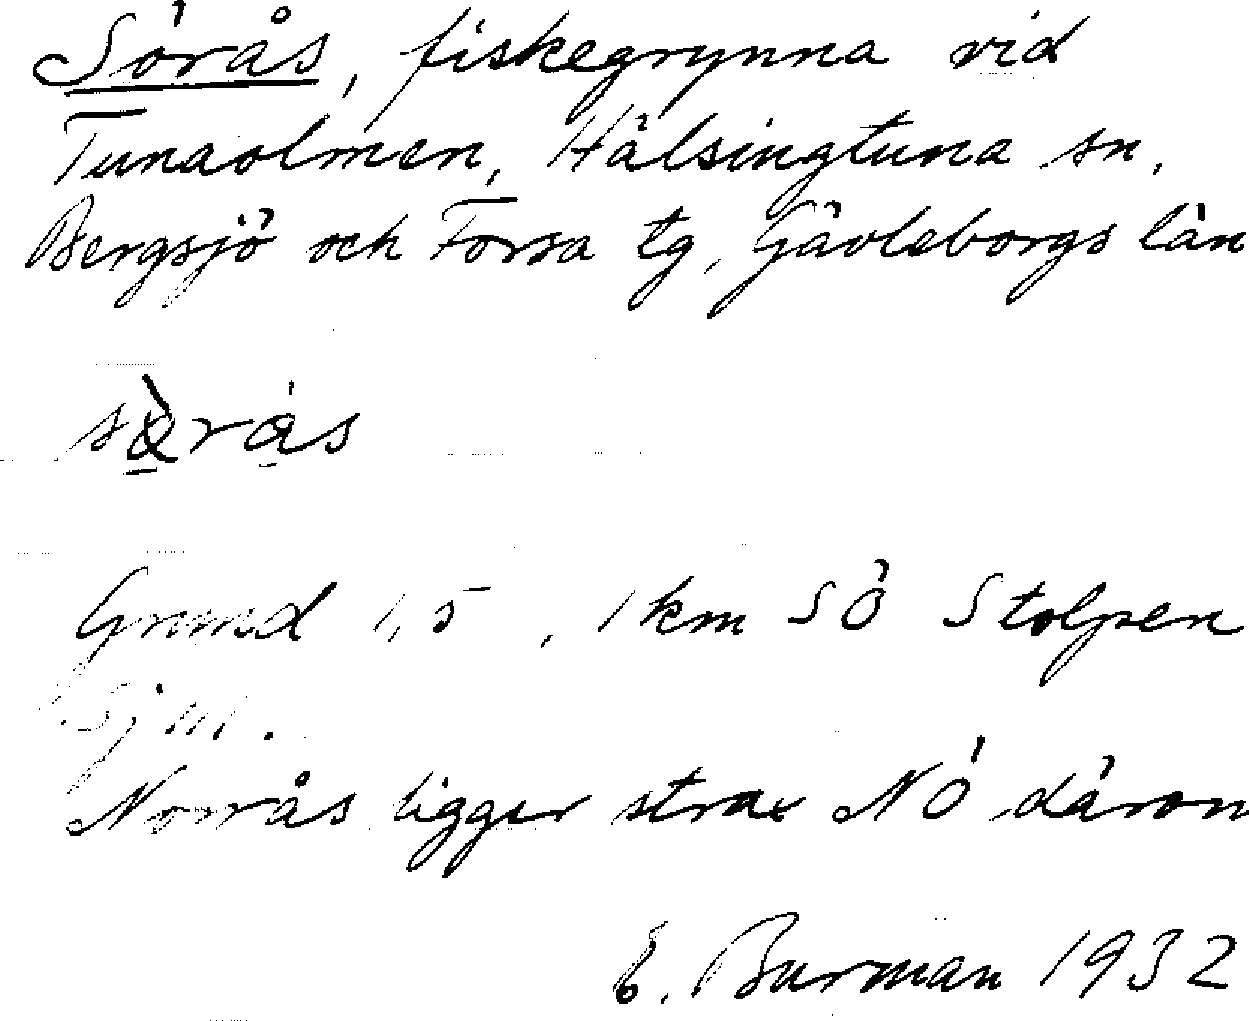 Sörås, fiskegrynna vid
Tunaolmen, Hälsingtuna sn,
Bergsjö och Forsa tg, Gävleborgs län
Grund 1,5 , 1 km SÖ Stolpen
Norrås ligger strax NÖ därom
E. Burman 1932